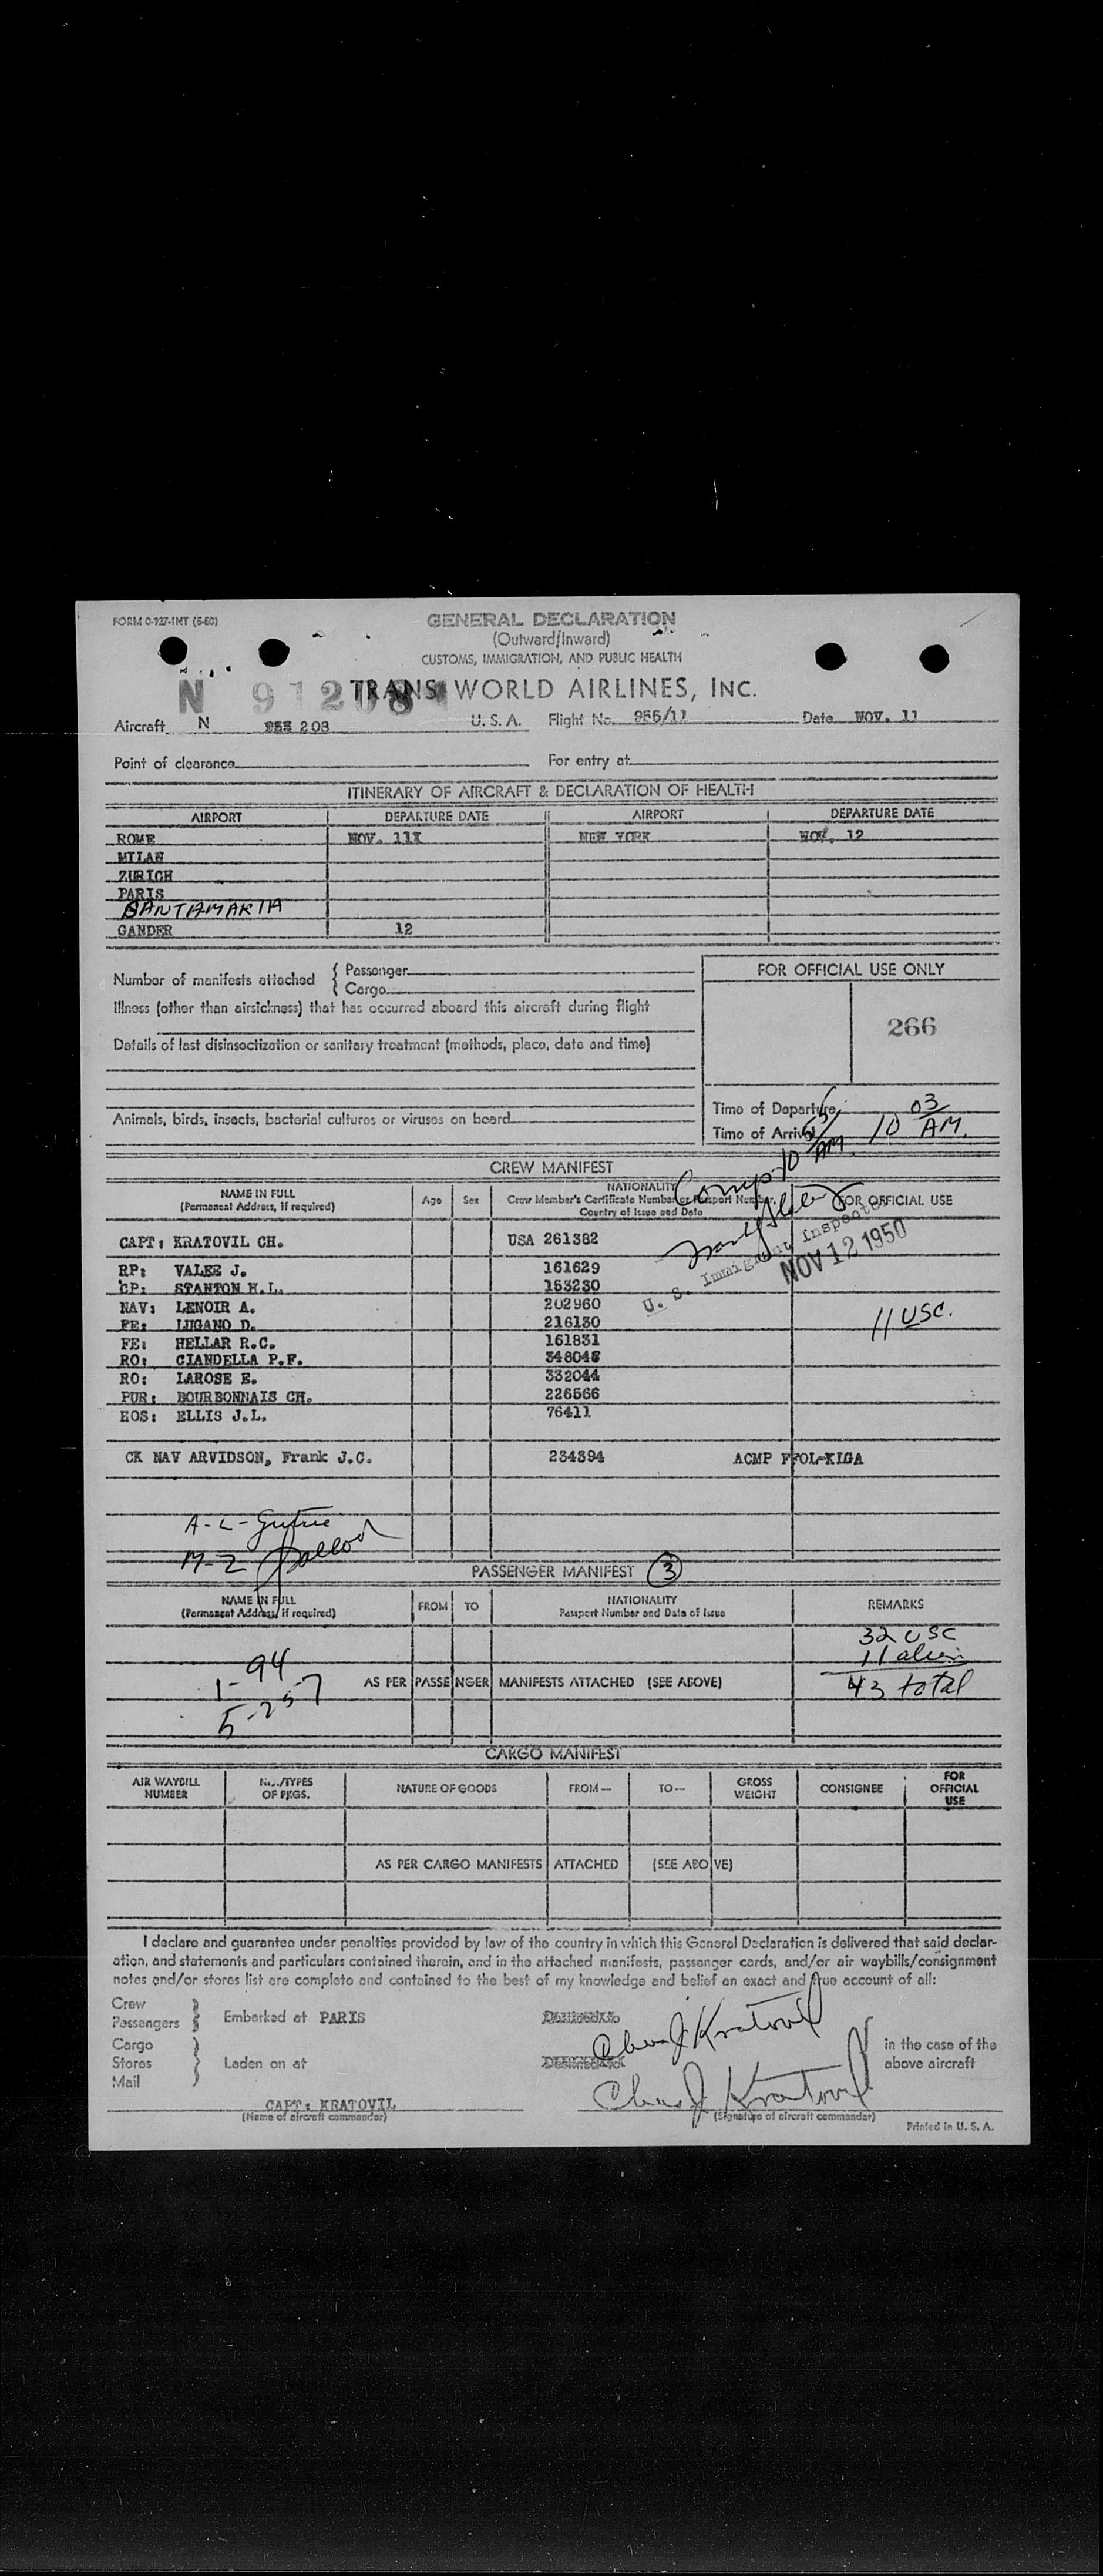 FORM O-727-INT (5-50)
GENERAL DECLARATION
(Outward/Inward)
CUSTOMS, IMMIGRATION, AND PUBLIC HEALTH
N 91208
TRANS WORLD AIRLINES, INC.
Aircraft N 203 U. S. A. Flight No. 956/11 Date NOV. 11
Point of clearance For entry at
ITINERARY OF AIRCRAFT & DECLARATION OF HEALTH
AIRPORT DEPARTURE DATE AIRPORT DEPARTURE DATE
ROME NOV. 11X NEW YORK NOV. 12
MILAN
ZURICH
PARIS
SANTAMARIA
GANDER 12
Number of manifests attached { Passenger
Cargo
FOR OFFICIAL USE ONLY
266
Illness (other than airsickness) that has occurred aboard this aircraft during flight
Details of last disinsectization or sanitary treatment (methods, place, date and time)
Animals, birds, insects, bacterial cultures or viruses on board
Time of Departure
Time of Arrival 10 03 AM.
Comp 10 55 AM
CREW MANIFEST
NAME IN FULL
(Permanent Address, if required)
Age Sex
NATIONALITY
Crew Member's Certificate Number or Passport Number,
Country of Issue and Date
FOR OFFICIAL USE
U. S. Immigrant Inspector
NOV 12 1950
CAPT: KRATOVIL CH. USA 261382
RP: VALEE J. 161629
CP: STANTON H.L. 153230
NAV: LENOIR A. 202960
FE: LUGANO D. 216130
11 USC.
FE: HELLAR R.C. 161831
RO: CIANDELLA P.F. 348048
RO: LAROSE E. 332044
PUR: BOURBONNAIS CH. 226566
HOS: ELLIS J.L. 76411
CK NAV ARVIDSON, Frank J.C. 234394 ACMP FFOL-KIDA
A-L-Gutrie
M-Z
PASSENGER MANIFEST 3
NAME IN FULL
(Permanent Address, if required)
FROM TO
NATIONALITY
Passport Number and Date of Issue
REMARKS
32 USC
11 aliens
43 total
1-94
5-257
AS PER PASSENGER MANIFESTS ATTACHED (SEE ABOVE)
CARGO MANIFEST
AIR WAYBILL NUMBER
NO./TYPES OF PKGS.
NATURE OF GOODS
FROM—
TO—
GROSS WEIGHT
CONSIGNEE
FOR OFFICIAL USE
AS PER CARGO MANIFESTS ATTACHED (SEE ABOVE)
I declare and guarantee under penalties provided by law of the country in which this General Declaration is delivered that said declar-
ation, and statements and particulars contained therein, and in the attached manifests, passenger cards, and/or air waybills/consignment
notes and/or stores list are complete and contained to the best of my knowledge and belief an exact and true account of all:
Crew
Passengers } Embarked at PARIS Destined to
Chas J Kratovil
Cargo
Stores } Laden on at Destined to
Mail
in the case of the
above aircraft
CAPT: KRATOVIL Chas J Kratovil
(Name of aircraft commander) (Signature of aircraft commander)
Printed in U. S. A.